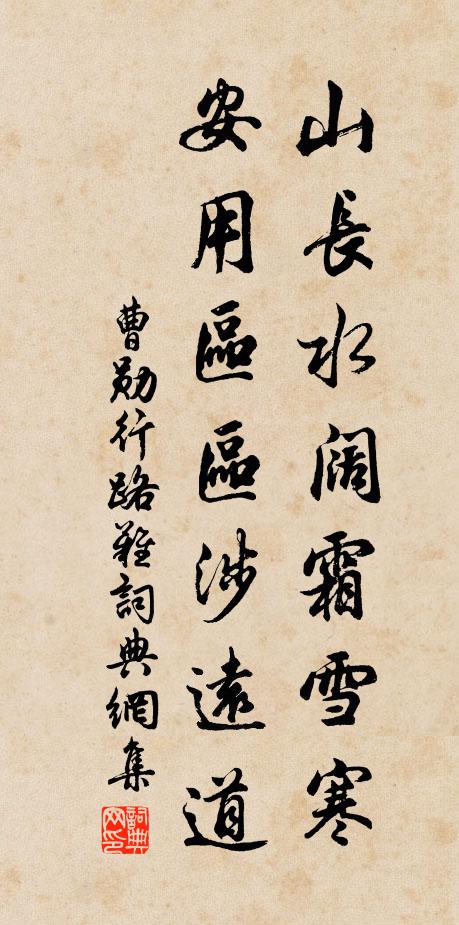 山長水闊霜雪寒
安用區區涉遠道
曹勛行路難詞典網集
詞典網印